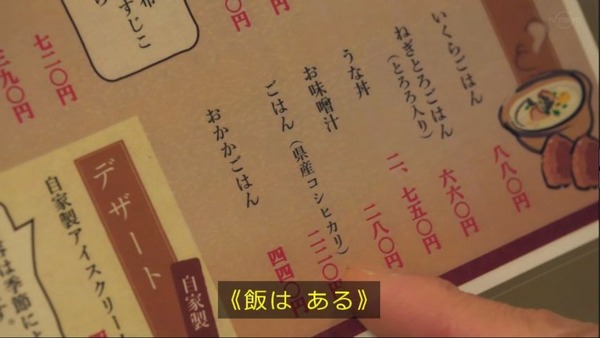 いくらごはん
八八〇円
ねぎとろごはん
(とろろ入り)
六六〇円
うな丼
二、七五〇円
お味噌汁
二八〇円
ごはん(県産コシヒカリ)
二二〇円
おかかごはん
四四〇円
〇円
すじこ
七二〇円
九〇円
デザート
自家製
自家製アイスクリー
は季節によ
す。
《飯は ある》